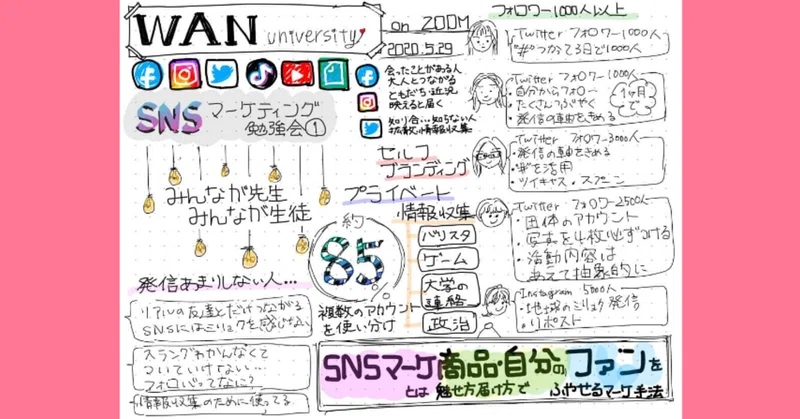 WAN university
on ZOOM
2020.5.29
SNS マーケティング
勉強会①
みんなが先生
みんなが生徒
会ったことがある人
大人とつながる
ともだち・近況
映えると届く
知り合…知らない人
拡散、情報収集
セルフ
ブランディング
プライベート
情報収集
バリスタ
ゲーム
大学の
連絡
政治
約
85
複数のアカウント
を使い分け
フォロワー1000人以上
Twitter フォロワー1000人
#つながて3日で1000人
Twitter フォロワー1000人
・自分からフォロー
・たくさんつぶやく
・発信の軸をきめる
1ヶ月で
Twitter フォロワー3000人
・発信の軸をきめる
・#を活用
・ツイキャス、スプーン
Twitter フォロワー2500人
・団体のアカウント
・写真を4枚必ずつける
・活動内容は
あえて抽象的に
Instagram 5000人
・地球のミリョク発信
・リポスト
発信あまりしない人…
リアルの友達とだけつながる
SNSにはミリョクを感じない
スラングわかんなくて
ついていけない…
フォロバってなに?
情報収集のために使ってる
SNSマーケ商品・自分のファンを
とは 魅せ方届け方で ふやせるマーケ手法